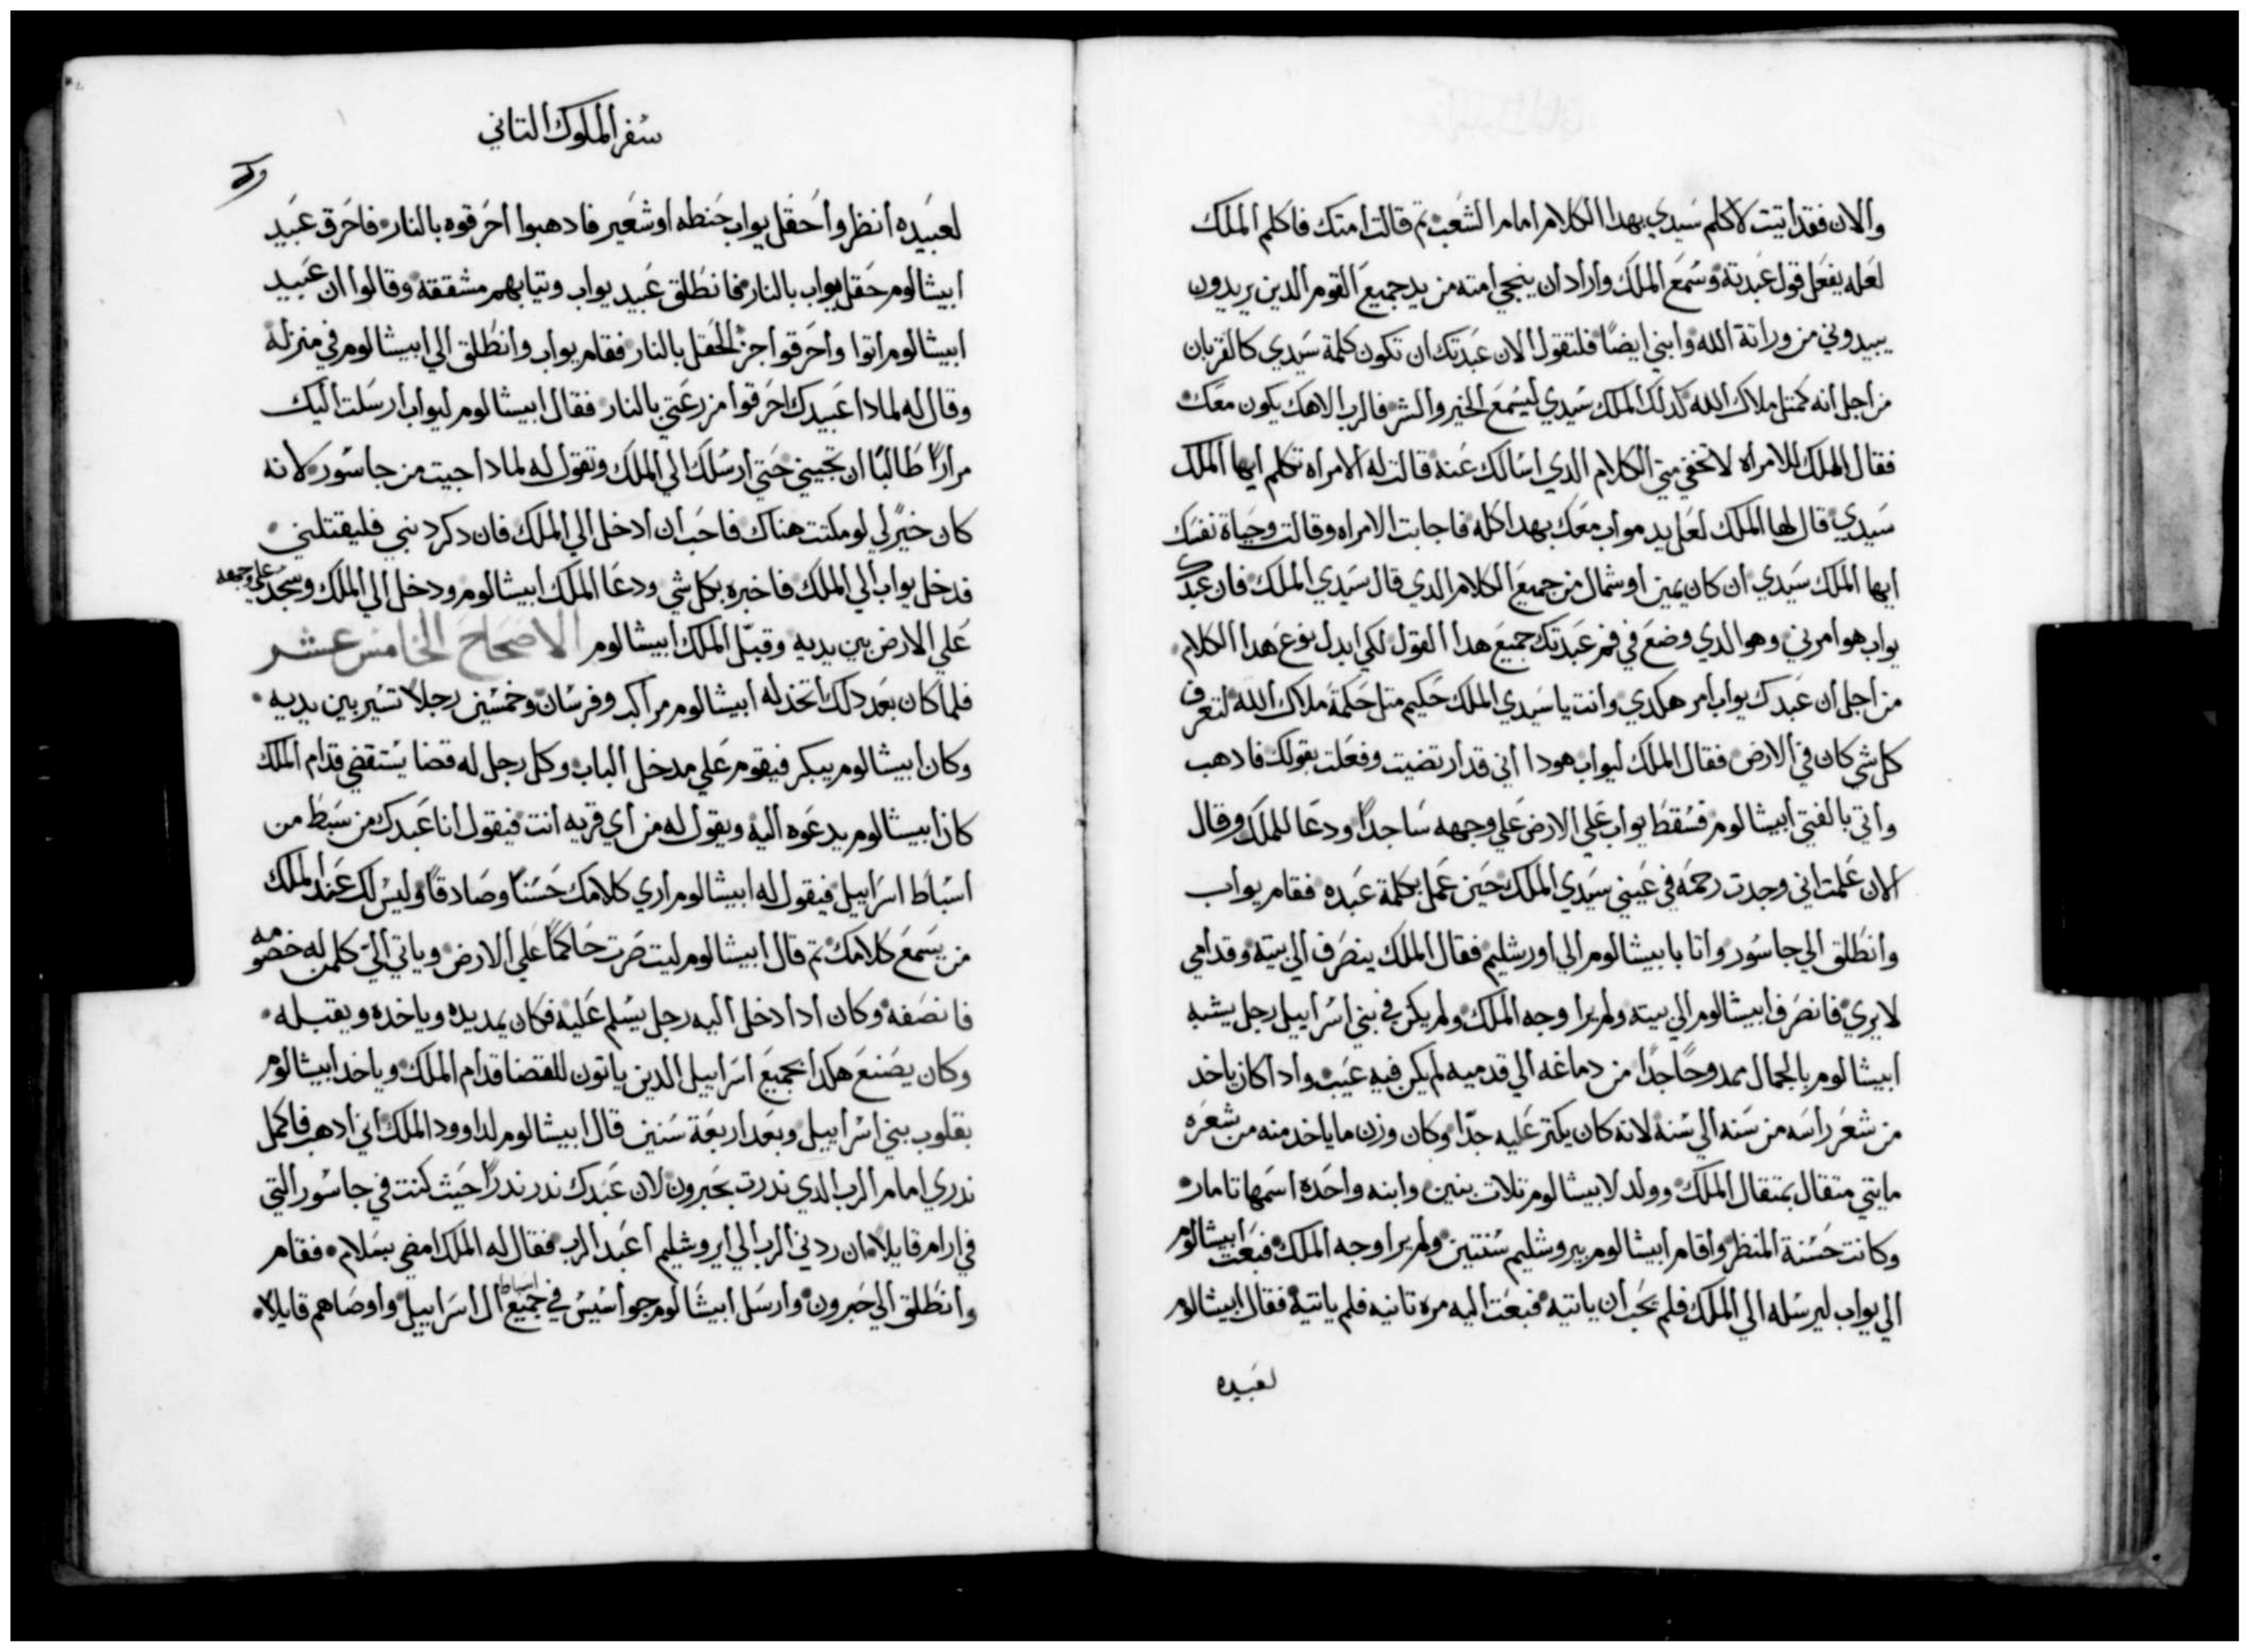 والان فقد اتيت لاكلم سيدي بهدا الكلام امام الشعب تم قالت امتك فاكلم الملك
لعله يفعل قول عبدته وسمع الملك واراد ان ينجي امته من يد جميع القوم الدين يريدون
يبيدوني من وراتة الله وابني ايضاً فلتقول الان عبدتك ان تكون كلمة سيدي كالقربان
من اجل انه كمتل ملاك الله كدلك الملك سيدي ليسمع الخير والشر فالرب الاهك يكون معك
فقال الملك للامراه لا تخفي مني الكلام الدي اسالك عنه قالت له الامراه تكلم ايها الملك
سيدي قال لها الملك لعل يد مواب معك بهدا كله فاجابت الامراه وقالت وحياة نفسك
ايها الملك سيدي ان كان يمين او شمال من جميع الكلام الدي قال سيدي الملك فان عبدك
يواب هو امرني وهو الدي وضع في فم عبدتك جميع هدا القول لكي ابدل نوع هدا الكلام
من اجل ان عبدك يواب امر هكدي وانت يا سيدي الملك حكيم متل حكمة ملاك الله لتعرف
كل شي كان في الارض فقال الملك ليواب هودا اني قد ارتضيت وفعلت بقولك فادهب
واتي بالفتي ابيشالوم فسقط يواب علي الارض علي وجهه ساجداً ودعا للملك وقال
الان علمت اني وجدت رحمه في عيني سيدي الملك حين عمل بكلمة عبده فقام يواب
وانطلق الي جاسور واتا بابيشالوم الي اورشليم فقال الملك ينصرف الي بيته وقدامي
لا يري فانصرف ابيشالوم الي بيته ولم يرا وجه الملك ولم يكن في بني اسراييل رجل يشبه
ابيشالوم بالجمال ممدوحاً جداً من دماغه الي قدميه لم يكن فيه عيب وادا كان ياخد
من شعر راسه من سنه الي سنه لانه كان يكتر عليه جدّا وكان وزن ما ياخد منه من شعره
مايتي متقال بمتقال الملك وولد لابيشالوم تلات بنين وابنه واحده اسمها تامار
وكانت حسنة المنظر واقام ابيشالوم بيروشليم سنتين ولم يرا وجه الملك فبعت ابيشالوم
الي يواب ليرسله الي الملك فلم يحب ان ياتيه فبعت اليه مره تانيه فلم ياتيه فقال ابيشالوم
لعبيده
سفر الملوك التاني
لعبيده انظروا حقل يواب حنطه او شعير فادهبوا احرقوه بالنار فاحرق عبيد
ابيشالوم حقل يواب بالنار فانطلق عبيد يواب وتيابهم مشققه وقالوا ان عبيد
ابيشالوم اتوا واحرقوا جز الحقل بالنار فقام يواب وانطلق الي ابيشالوم في منزله
وقال له لمادا عبيدك احرقوا مزرعتي بالنار فقال ابيشالوم ليواب ارسلت اليك
مراراً طالباً ان تجيني حتي ارسلك الي الملك وتقول له لمادا جيت من جاسور لانه
كان خيرً لي لو مكتت هناك فاحب ان ادخل الي الملك فان دكر دنبي فليقتلني
فدخل يواب الي الملك فاخبره بكل شي ودعا الملك ابيشالوم ودخل الي الملك وسجد علي وجهه
علي الارض بين يديه وقبّل الملك ابيشالوم الاصحاح الخامس عشر
فلما كان بعد دلك اتخد له ابيشالوم مراكب وفرسان وخمسين رجلاً تسير بين يديه
وكان ابيشالوم يبكر فيقوم علي مدخل الباب وكل رجل له قضا يستقضي قدام الملك
كان ابيشالوم يدعوه اليه ويقول له من اي قريه انت فيقول انا عبدك من سبط من
اسباط اسراييل فيقول له ابيشالوم اري كلامك حسناً وصادقاً وليس لك عند الملك
من يسمع كلامك تم قال ابيشالوم ليت صرت حاكماً علي الارض وياتي اليّ كلمن له خصومه
فانصفه وكان ادا دخل اليه رجل يسلم عليه فكان يمد يده وياخده ويقبله
وكان يصنع هكدا بجميع اسراييل الدين ياتون للقضا قدام الملك وياخد ابيشالوم
بقلوب بني اسراييل وبعد اربعة سنين قال ابيشالوم لداوود الملك اني ادهب فاكمل
ندري امام الرب الدي ندرت بحبرون لان عبدك ندر ندراً حيث كنت في جاسور التي
في ارام قايلاً ان ردني الرب الي ايروشليم اعبد الرب فقال له الملك امضي بسلام فقام
وانطلق الي حبرون وارسل ابيشالوم جواسيس في جميع اسباط ال اسراييل واوصاهم قايلاً